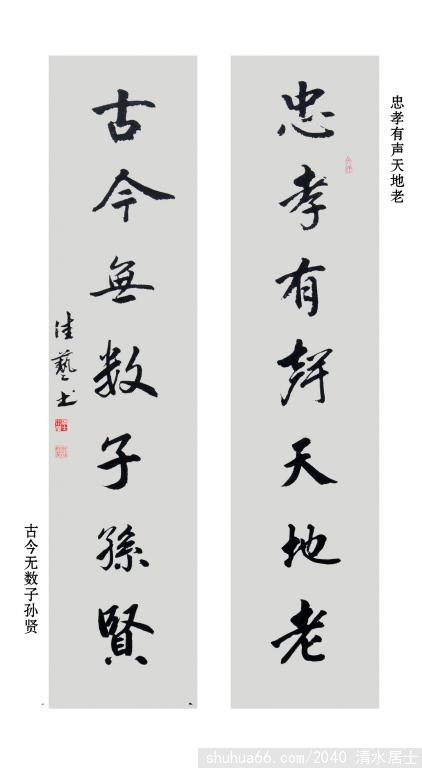 忠孝有声天地老
忠孝有聲天地老
古今無数子孫賢
佳藝书
古今无数子孙贤
shuhua66.com/2040 清水居士